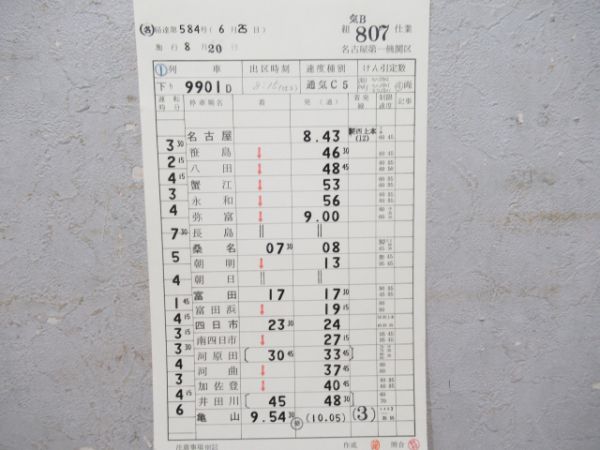 ㊔ 局達第584号 (6月25日)
施行 8月20日
気B
初 807 仕業
名古屋第一機関区
① 列車 出区時刻 速度種別 けん引定数
下り 9901D 通気C5
運転時分 停車場名 着 発(通) 着発線 制限速度 記事
名古屋 8.43 (12)
3 30 笹島 ↓ 46 30
2 15 八田 ↓ 48 45
4 15 蟹江 ↓ 53
3 永和 ↓ 56
4 弥富 ↓ 9.00
長島 || ||
7 30 桑名 07 30 08
5 朝明 ↓ 13
朝日 || ||
4 富田 17 17 30
1 45 富田浜 ↓ 19 15
4 15 四日市 23 30 24
3 15 南四日市 ↓ 27 15
3 30 河原田 [30 45 33 45]
4 河曲 ↓ 37 45
3 加佐登 ↓ 40 45
4 15 井田川 [45 48 30]
6 亀山 9.54 30 (10.05) (3)
注意事項裏記 作成 照合